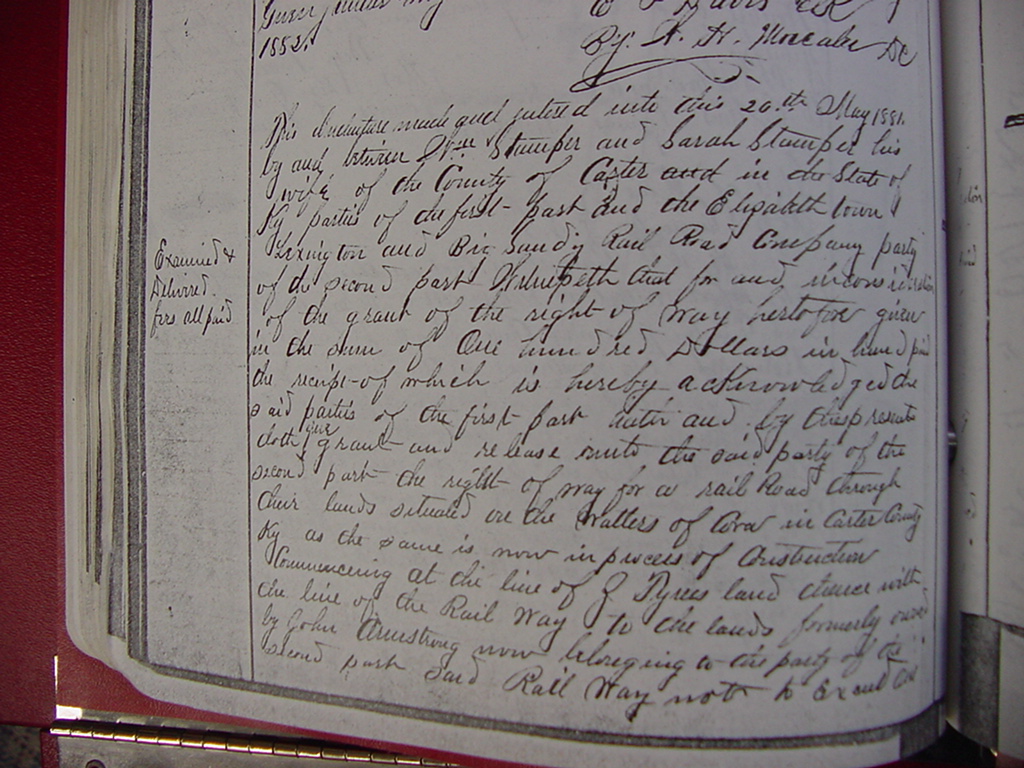 Given under my
1882.
By. A. H. DC
Examined &
Delivered
fees all paid
This Indenture made and entered into this 20th May 1881.
by and between Wm Stamper and Sarah Stamper his
wife of the County of Carter and in the State of
Ky parties of the first part and the Elizabeth town
Lexington and Big Sandy Rail Road Company party
of the second part Witnesseth that for and in consideration
of the grant of the right of way heretofore given
in the sum of One hundred Dollars in hand paid
the receipt of which is hereby acknowledged the
said parties of the first part and by these presents
doth give grant and release unto the said party of the
second part the right of way for a rail Road through
their lands situated on the Watters of in Carter County
Ky as the same is now in process of Construction
Commencing at the line of Tyrees land thence with
the line of the Rail Way to the lands formerly owned
by John Armstrong now belonging to the party of the
second part Said Rail Way not to Exceed